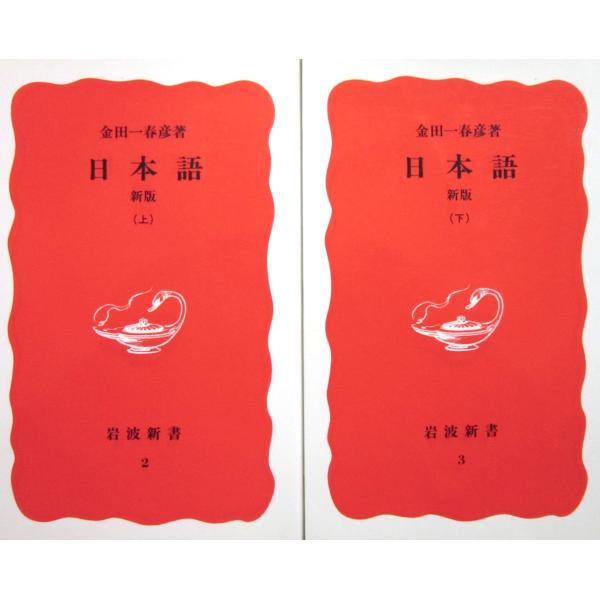 金田一春彦著
日本語
新版
(上)
岩波新書
2
金田一春彦著
日本語
新版
(下)
岩波新書
3